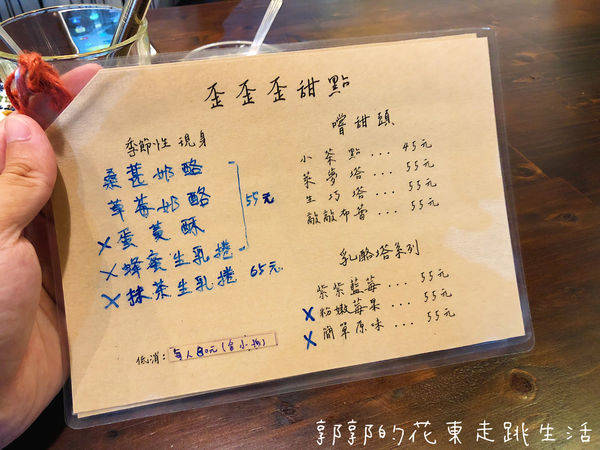 歪歪歪甜點
季節性 現身
桑葚奶酪
草莓奶酪
55元
X 蛋菱酥
X 蜂蜜生乳捲
X 抹茶生乳捲 65元
低消: 每人80元(含小孩)
嚐甜頭
小茶點...45元
萊夢塔...55元
生巧塔...55元
敲敲布蕾...55元
乳酪塔系列
紫紫藍莓...55元
X 粉嫩莓果...55元
X 簡單原味...55元
郭郭的花東走跳生活